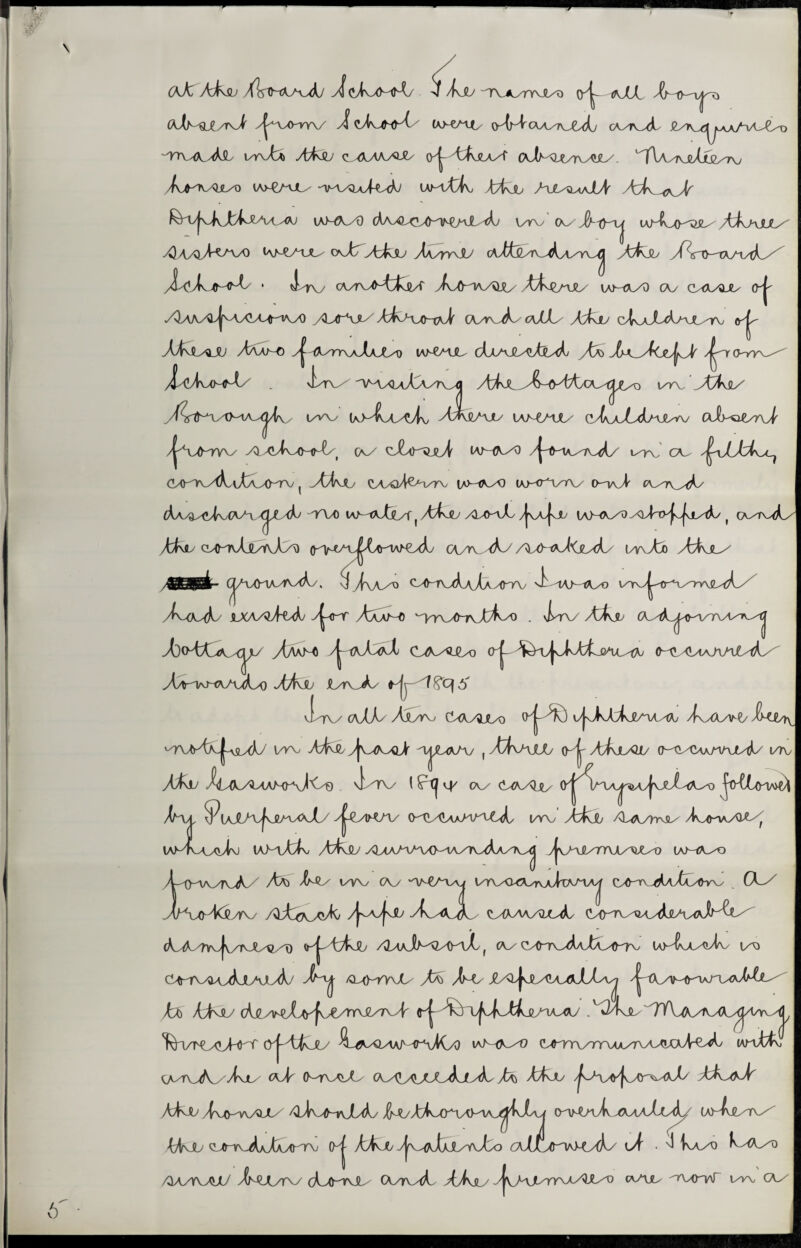 at the Board School. The names of all boys
absent from School were obtained and enquiries
made into the cause of their absence. Nineteen
houses were visited with the result that
Diphtheria was discovered in a boy whose three
sisters were at the time attending the Board
School. In another house there was a case of
suspicious sore throat and all the children of
these two families were directed to be kept from
School. In visiting the Cottages in the
Borough in which there were children absent
from school, a closet was found in a filthy
condition, the cistern was worn out and
discharged no water, the soil pipe was stopped, and
the contents overflowed and soaked into the
ground. This condition I was informed
had existed for two months. In the adjoining
Cottage two fatal cases of Diphtheria occurred
towards the end of 1895
In all ten cases of Diphtheria have been
notified in the past year, three of these occurred in
the Gasworks. In 1894 a case of Erysipelas followed
by Puerperal fever occurred in the same house,
which with the surrounding premises was
found to be in a very insanitary condition. A
broken stack pipe had caused considerable
dampness of the subsoil, a condition which is
considered by some to be especially favourable
to the developement of Diphtheria. The Managing
Director of the Gasworks was communicated with
and he at once acceeded to the proposal that
the house should be thoroughly overhauled, when
the condition of the patients allowed it. This has
since been done and the premises are now in a
5.